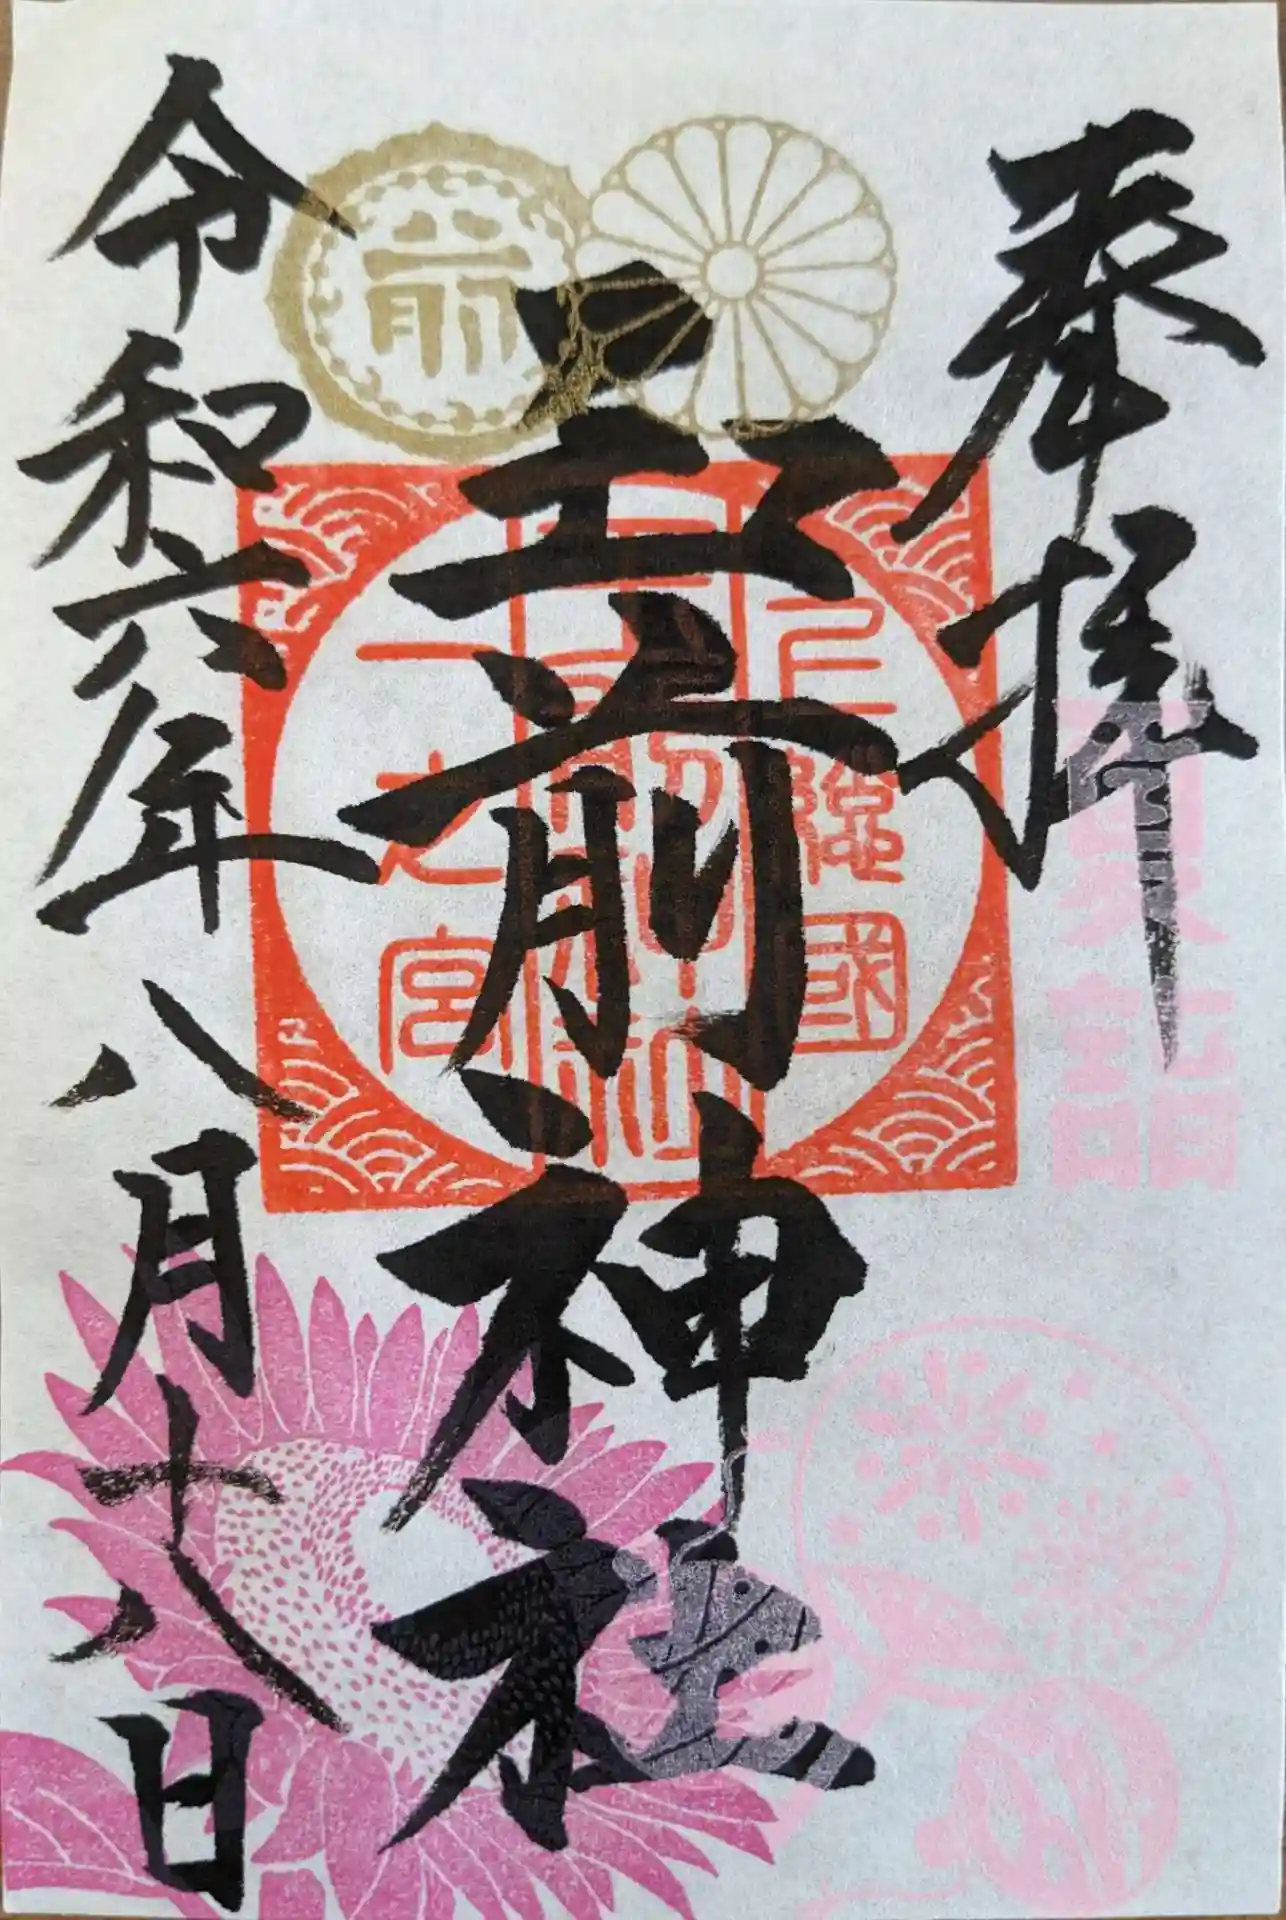 奉拝
夏詣
前
玉前神社
上総國
玉前神社
一之宮
令和六年八月十八日